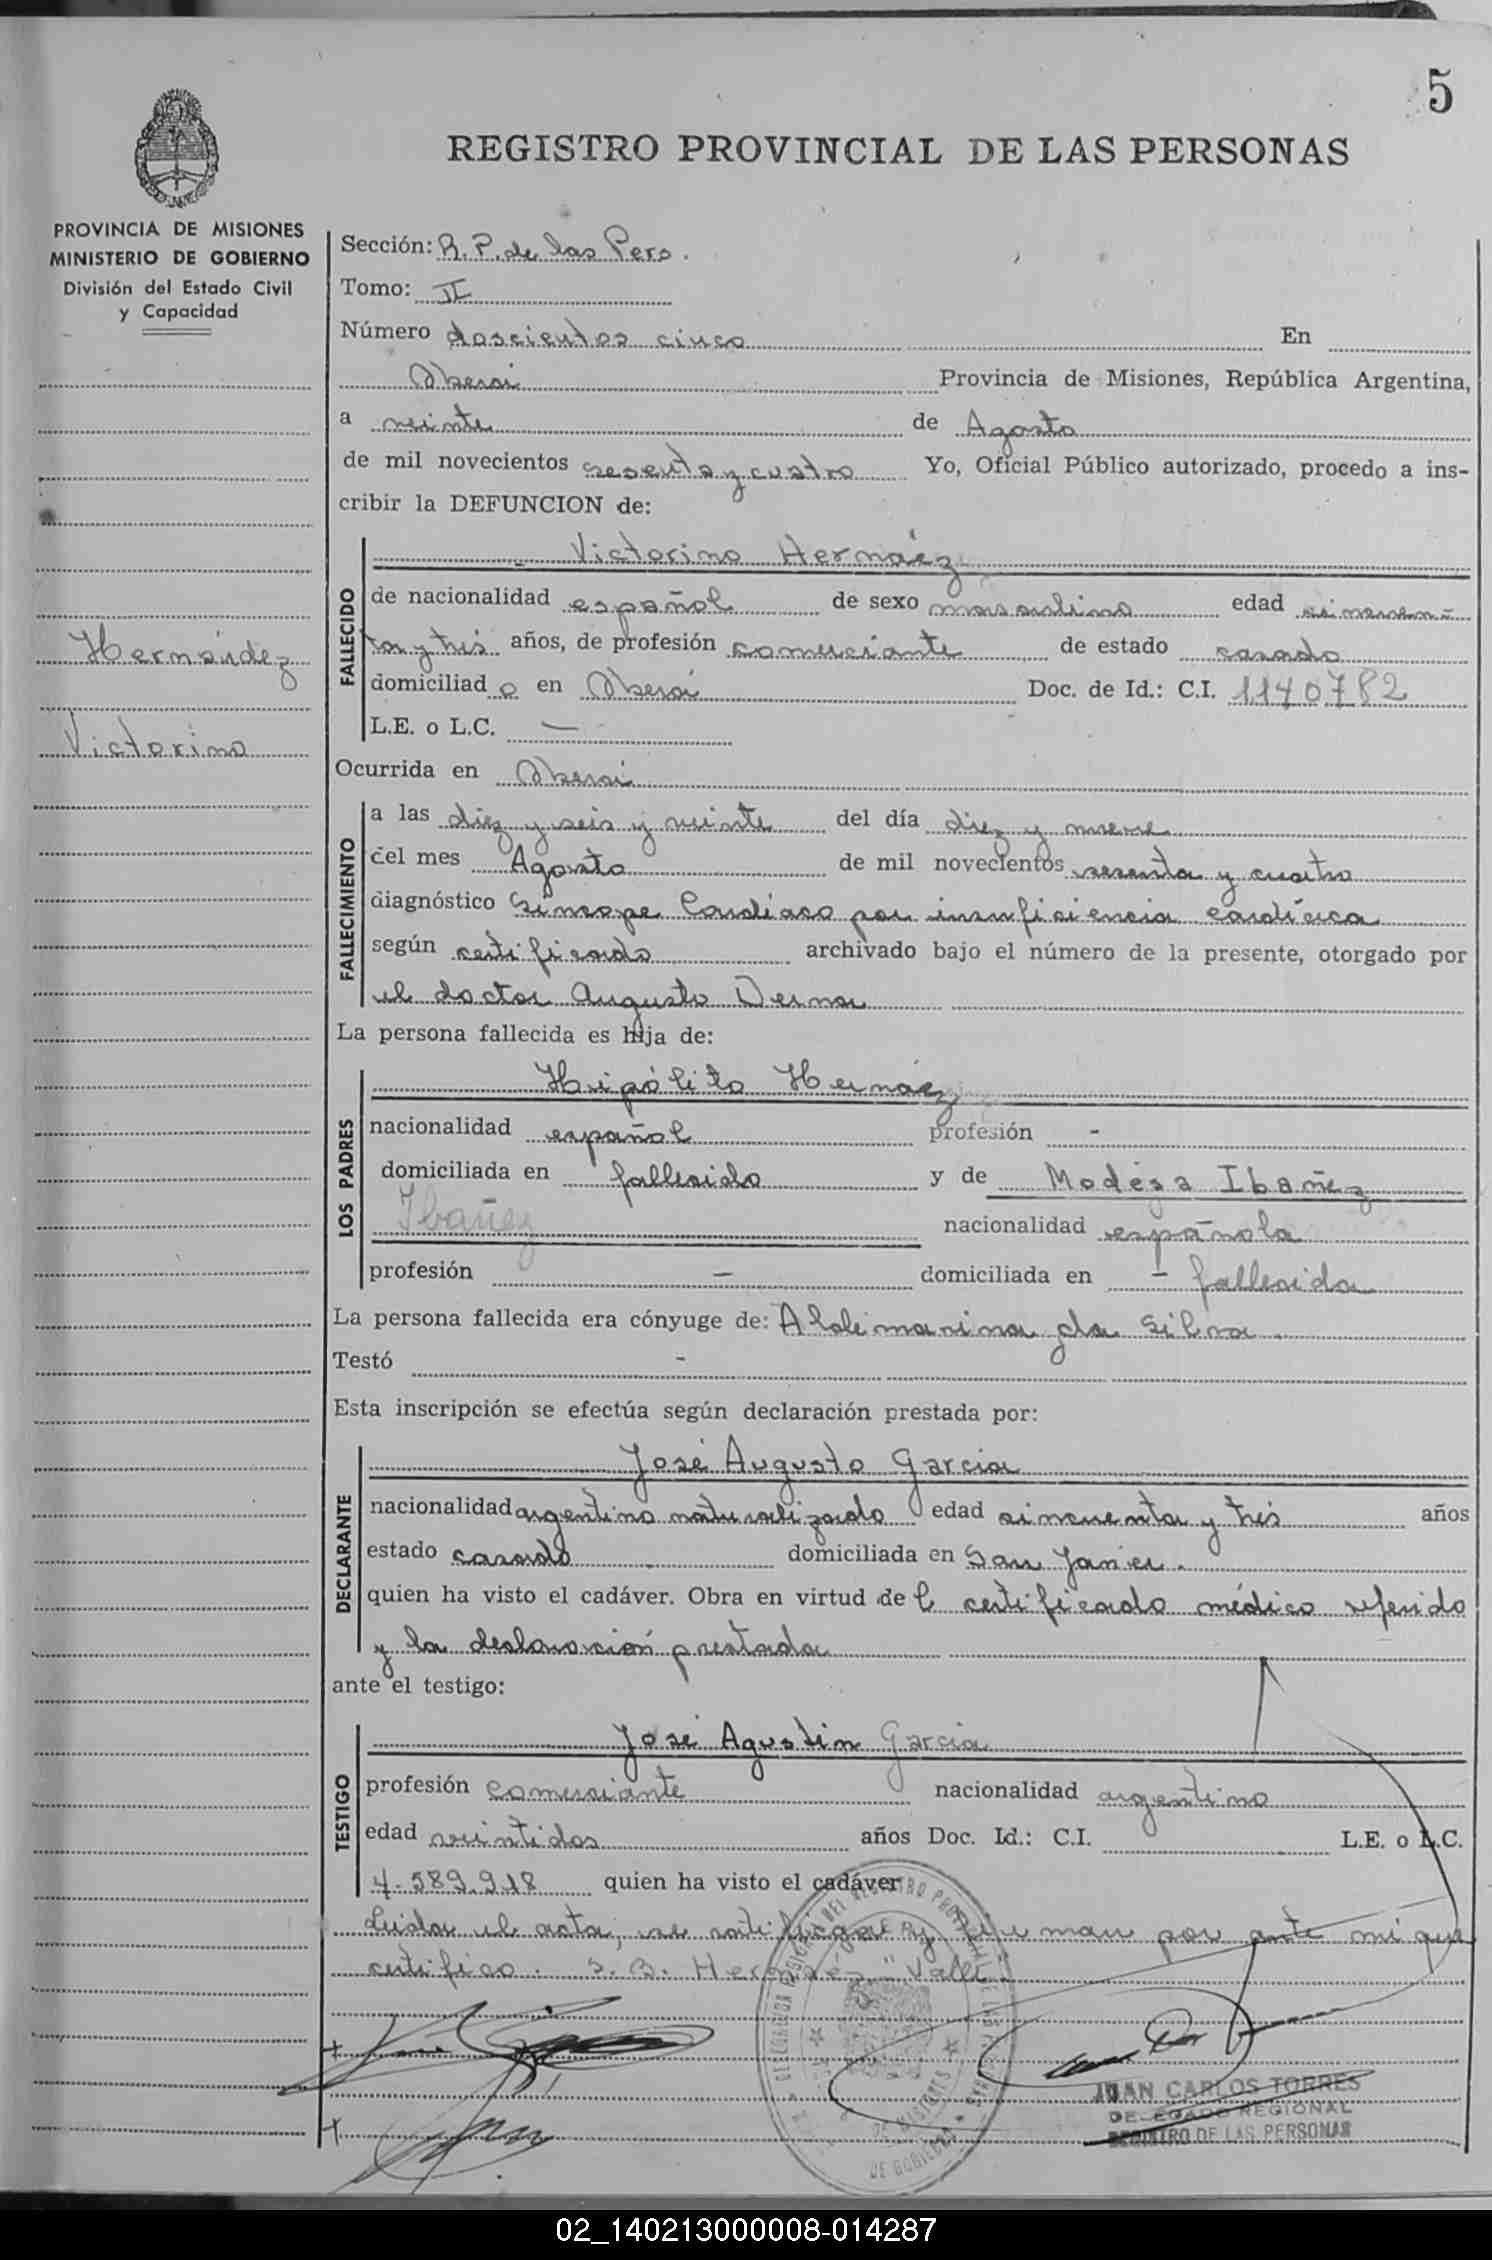 5
REGISTRO PROVINCIAL DE LAS PERSONAS
PROVINCIA DE MISIONES
MINISTERIO DE GOBIERNO
División del Estado Civil
y Capacidad
Hernández
Victorino
Sección: R. P. de las Pers.
Tomo: II
Número doscientos cinco En
Oberá Provincia de Misiones, República Argentina,
a veinte de Agosto
de mil novecientos sesenta y cuatro Yo, Oficial Público autorizado, procedo a ins-
cribir la DEFUNCION de:
FALLECIDO
Victorino Hernáez
de nacionalidad español de sexo masculino edad cincuen
ta y tres años, de profesión comerciante de estado casado
domiciliad o en Oberá Doc. de Id.: C.I. 1140782
L.E. o L.C. —
Ocurrida en Oberá
FALLECIMIENTO
a las diez y seis y veinte del día diez y nueve
del mes Agosto de mil novecientos sesenta y cuatro
diagnóstico Síncope Cardíaco por insuficiencia cardíaca
según certificado archivado bajo el número de la presente, otorgado por
el doctor Augusto Derna
La persona fallecida es hija de:
LOS PADRES
Hipólito Hernáez
nacionalidad español profesión -
domiciliada en fallecido y de Modésa Ibañez
Ibañez nacionalidad española
profesión — domiciliada en - fallecida
La persona fallecida era cónyuge de: Aldimarina da Silva
Testó -
Esta inscripción se efectúa según declaración prestada por:
DECLARANTE
José Augusto Garcia
nacionalidad argentino naturalizado edad cincuenta y tres años
estado casado domiciliada en San Javier.
quien ha visto el cadáver. Obra en virtud de l certificado médico referido
y la declaración prestada
ante el testigo:
TESTIGO
José Agustín Garcia
profesión comerciante nacionalidad argentino
edad veintidos años Doc. Id.: C.I. L.E. o L.C.
4.589.918 quien ha visto el cadáver
Leida el acta, se ratifican y firman por ante mi que
certifico. S. B. Hernáez "Vale".
JUAN CARLOS TORRES
DELEGADO REGIONAL
REGISTRO DE LAS PERSONAS
02_140213000008-014287